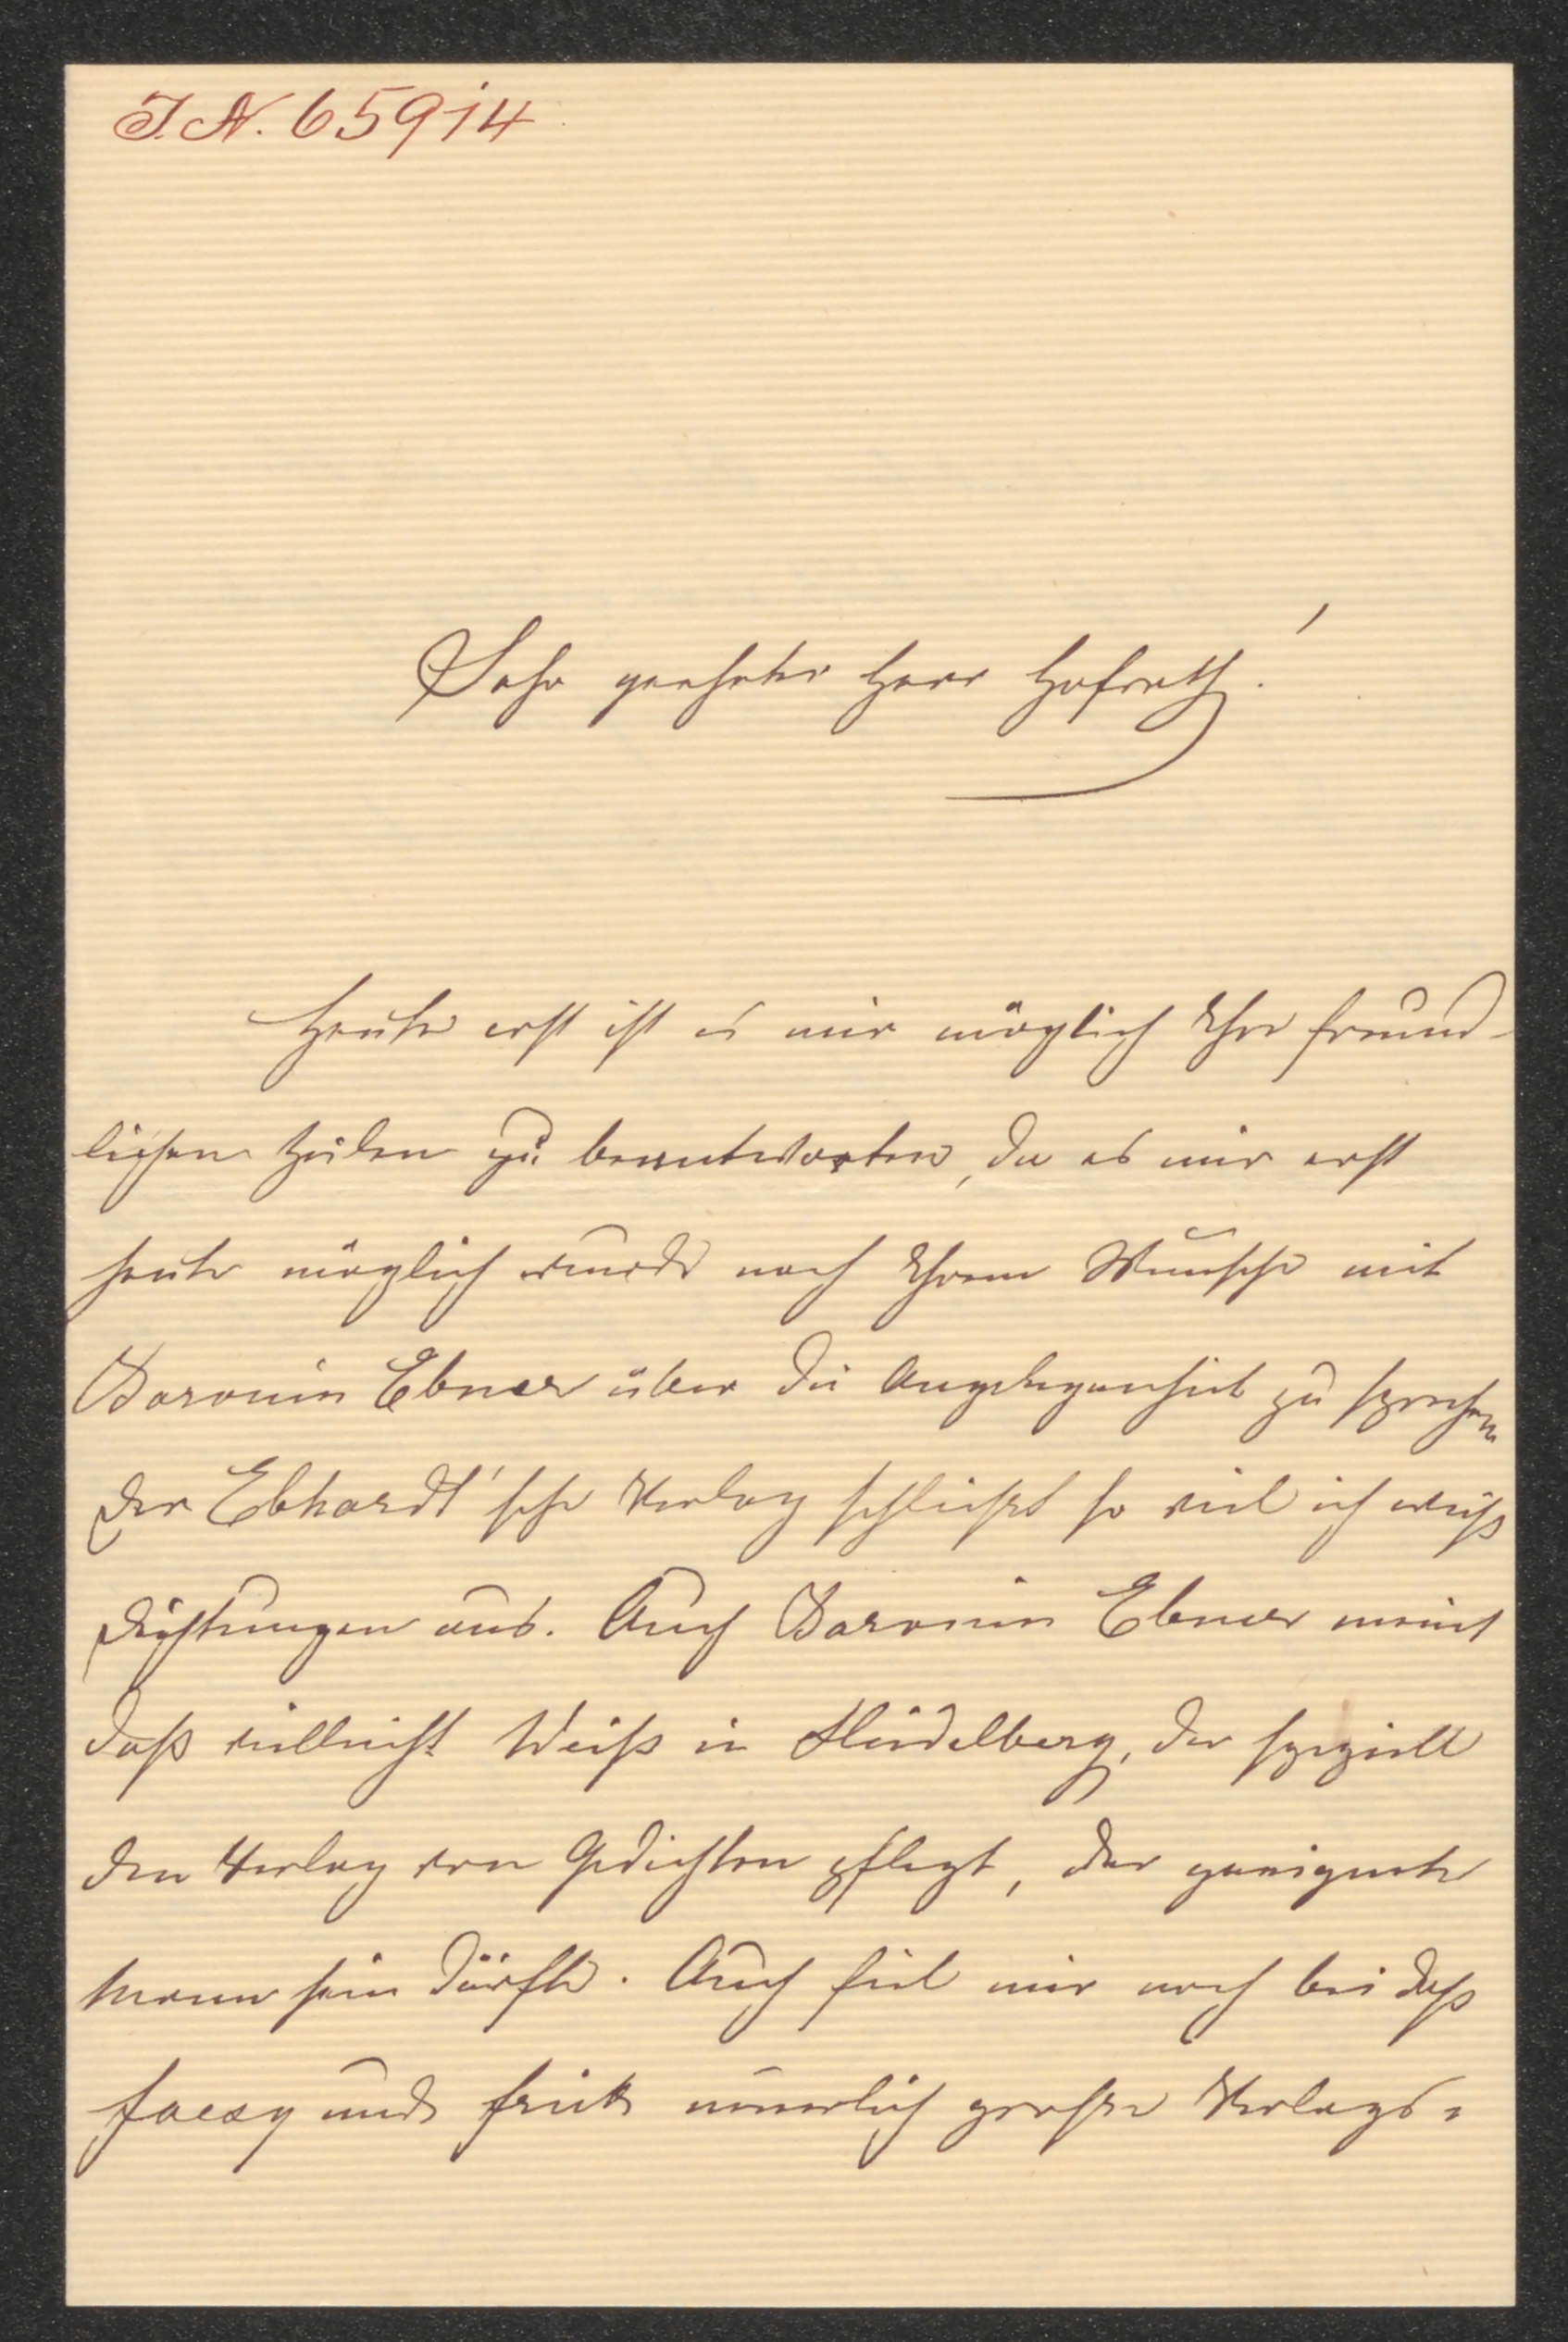 J.N. 65914
Sehr geehrter Herr Hofrath!
Heute erst ist es mir möglich Ihre freund-
lichen Zeilen zu beantworten, da es mir erst
heute möglich wurde nach Ihrem Wunsche mit
Baronin Ebner über die Angelegenheit zu sprechen
Der Ebhardt'sche Verlag schließt so viel ich weiß
Dichtungen aus. Auch Baronin Ebner meint
daß vielleicht Weiß in Heidelberg, der speziell
den Verlag von Gedichten pflegt, der geeignete
Mann sein dürfte. Auch fiel mir noch bei daß
Faesy und Frick neuerlich große Verlags-